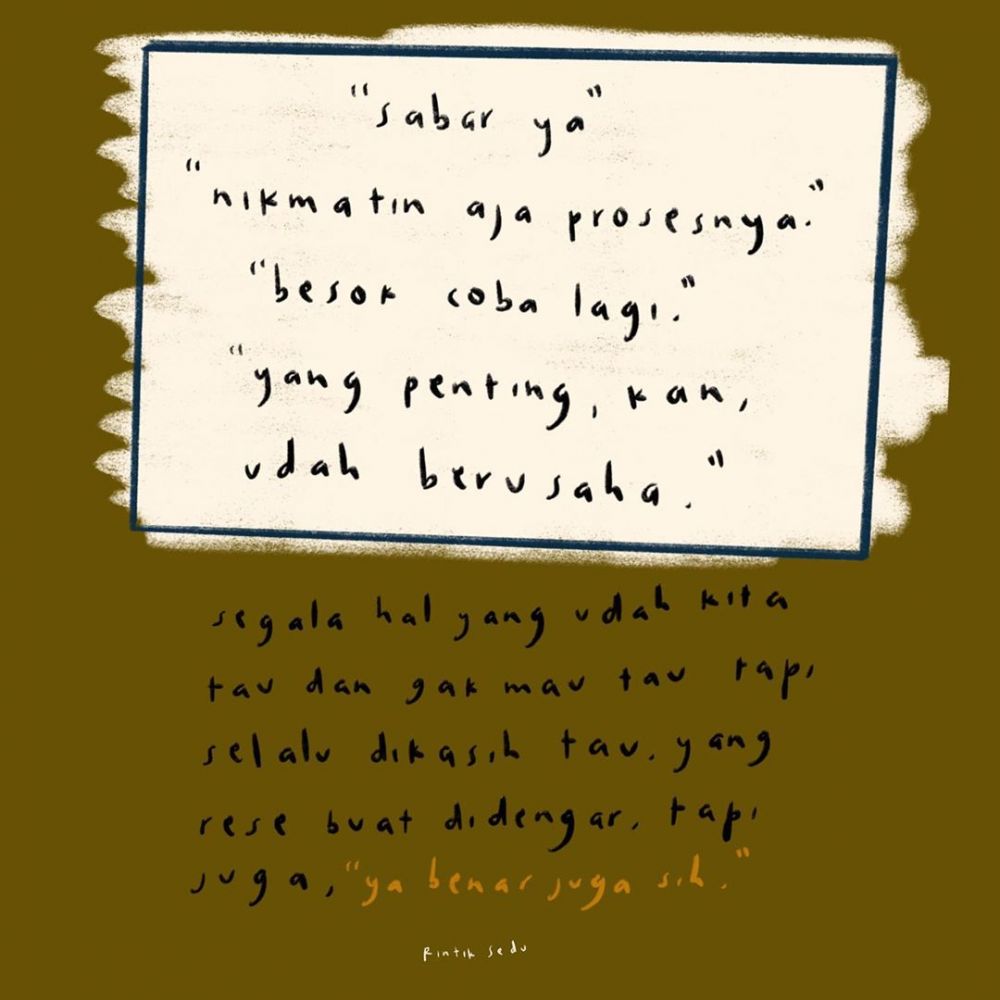 "sabar ya"
"nikmatin aja prosesnya."
"besok coba lagi."
"yang penting, kan,
udah berusaha."
segala hal yang udah kita
tau dan gak mau tau tapi
selalu dikasih tau. yang
rese buat didengar. tapi
juga, "ya benar juga sih."
Rintik Sedu